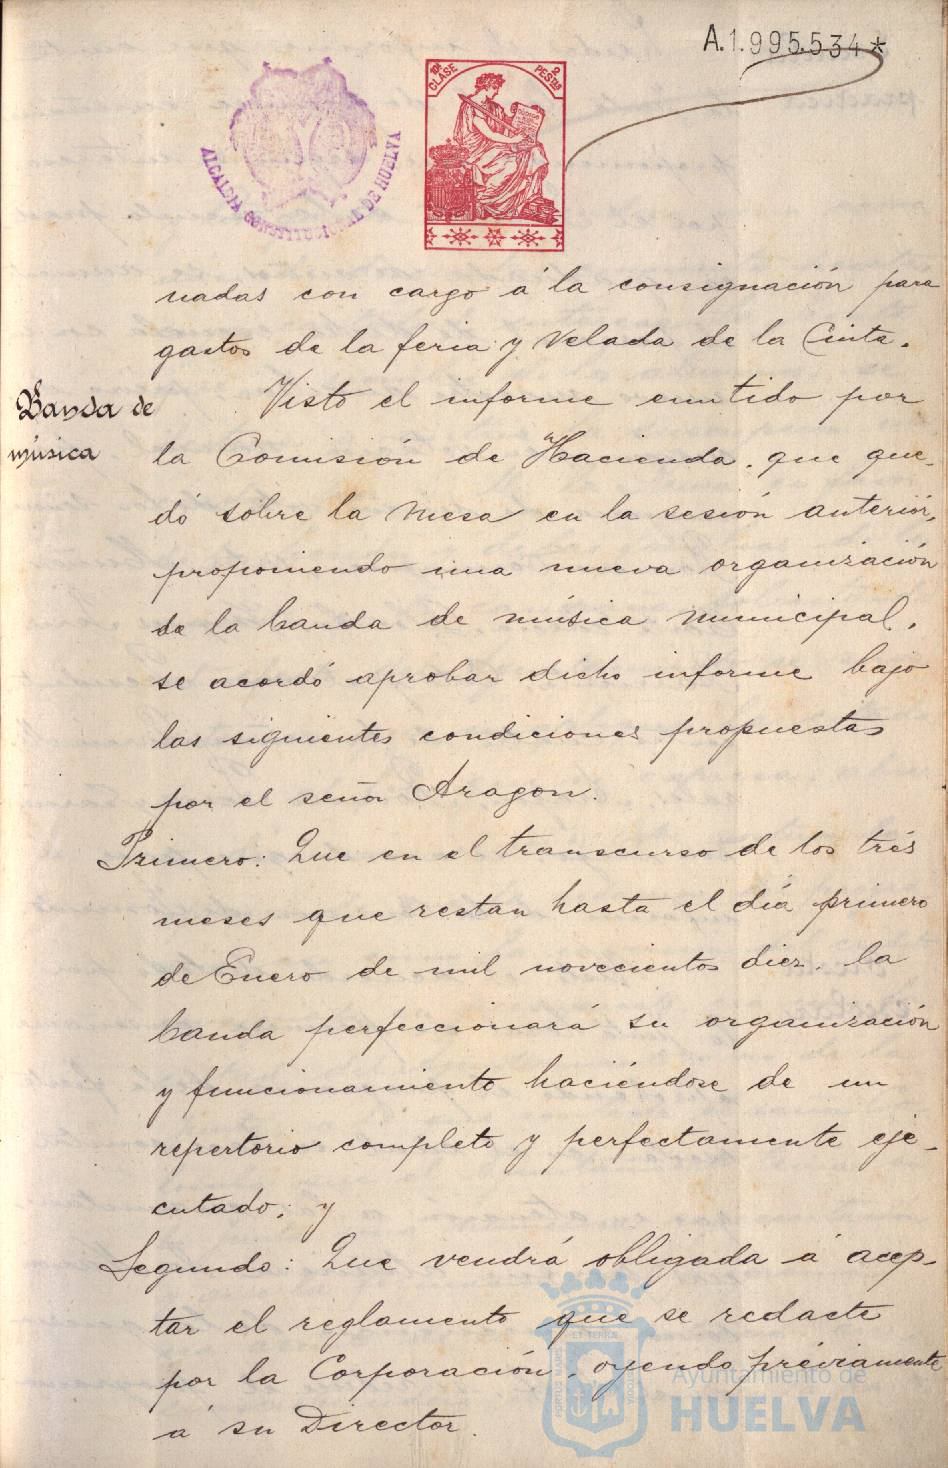 A.1.995.534*
10ª CLASE
2 PESTAS
ALCALDIA CONSTITUCIONAL DE HUELVA
nadas con cargo á la consignación para
gastos de la feria y Velada de la Cinta.
Banda de
música
Visto el informe emitido por
la Comisión de Hacienda, que que-
dó sobre la mesa en la sesión anterior,
proponiendo una nueva organización
de la banda de música municipal,
se acordó aprobar dicho informe bajo
las siguientes condiciones propuestas
por el señor Aragon.
Primero: Que en el transcurso de los tres
meses que restan hasta el día primero
de Enero de mil novecientos diez, la
banda perfeccionará su organización
y funcionamiento haciéndose de un
repertorio completo y perfectamente eje-
cutado; y
Segundo: Que vendrá obligada á acep-
tar el reglamento que se redacte
por la Corporación, oyendo préviamente
á su Director.
Ayuntamiento de
HUELVA